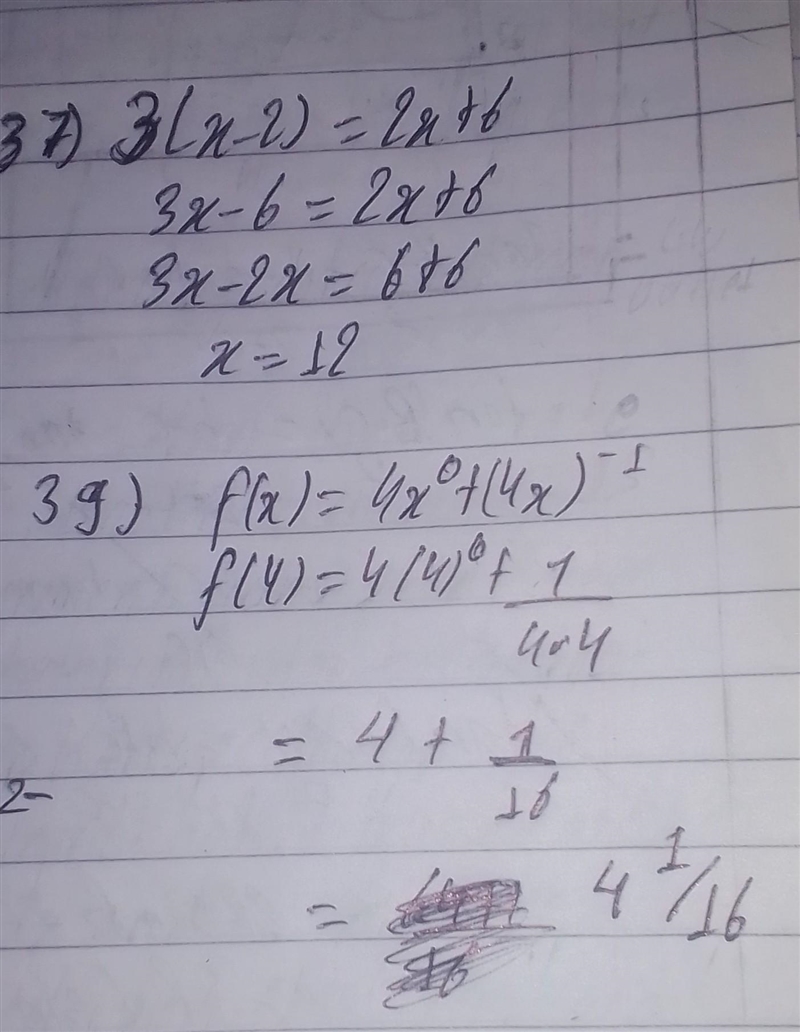 37) 3(x-2) = 2x+6
3x-6 = 2x+6
3x-2x = 6+6
x = 12
39) f(x) = 4x⁰+(4x)⁻¹
f(4) = 4(4)⁰+ 1/4×4
= 4 + 1/16
2-
= 4 1/16